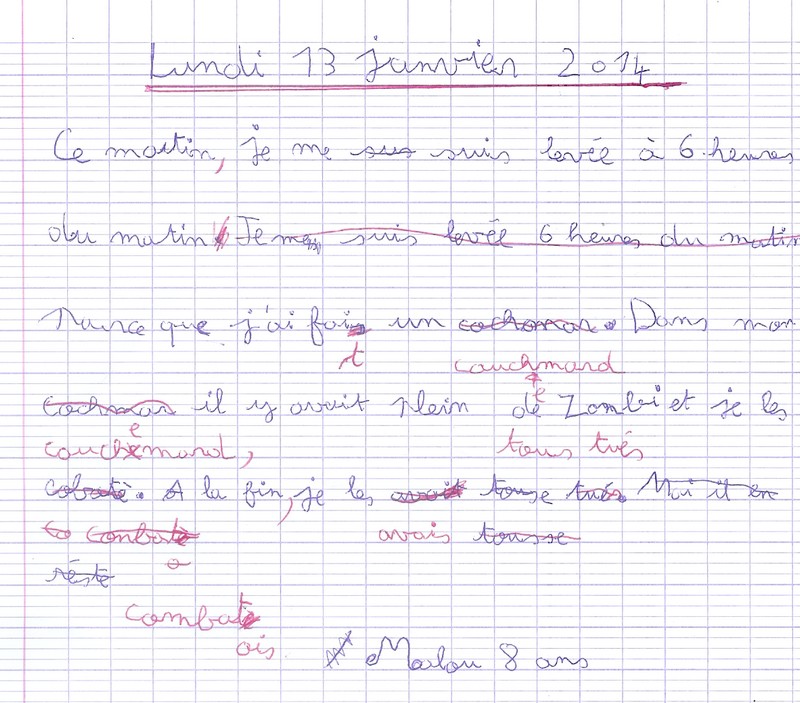 Lundi 13 janvier 2014
Ce matin, je me sus suis levée à 6 heures
du matin Je me suis levée 6 heures du matin
Parce que j'ai fai un cochomar. Dans mon
t couchmard
e
cochmar il y avait plein de Zombi et je les
couchemard, tous tués
cobatè. A la fin, je les avait touse tués. Moi it en
combatè avais tousse
a
réste
combat
ois
Malou 8 ans